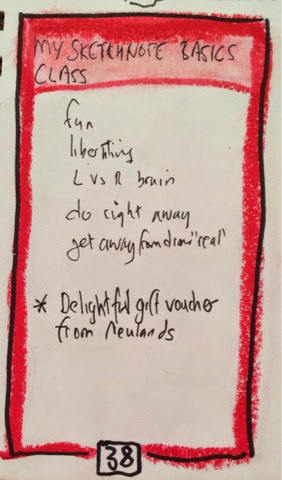 MY SKETCHNOTE BASICS
CLASS
fun
liberating
L vs R brain
do right away
get away from draw "real"
* Delightful gift voucher
from Neulands
38